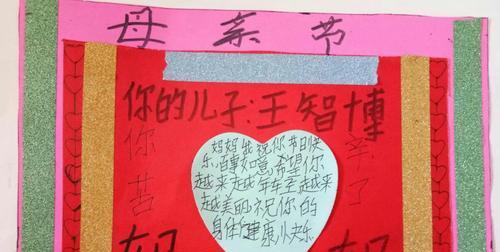 母亲节
你的儿子:王智博
妈妈我祝你节日快
乐,百事如意,希望你
越来越年轻越来
越美丽,祝你的
身体健康小快乐
你苦
辛了